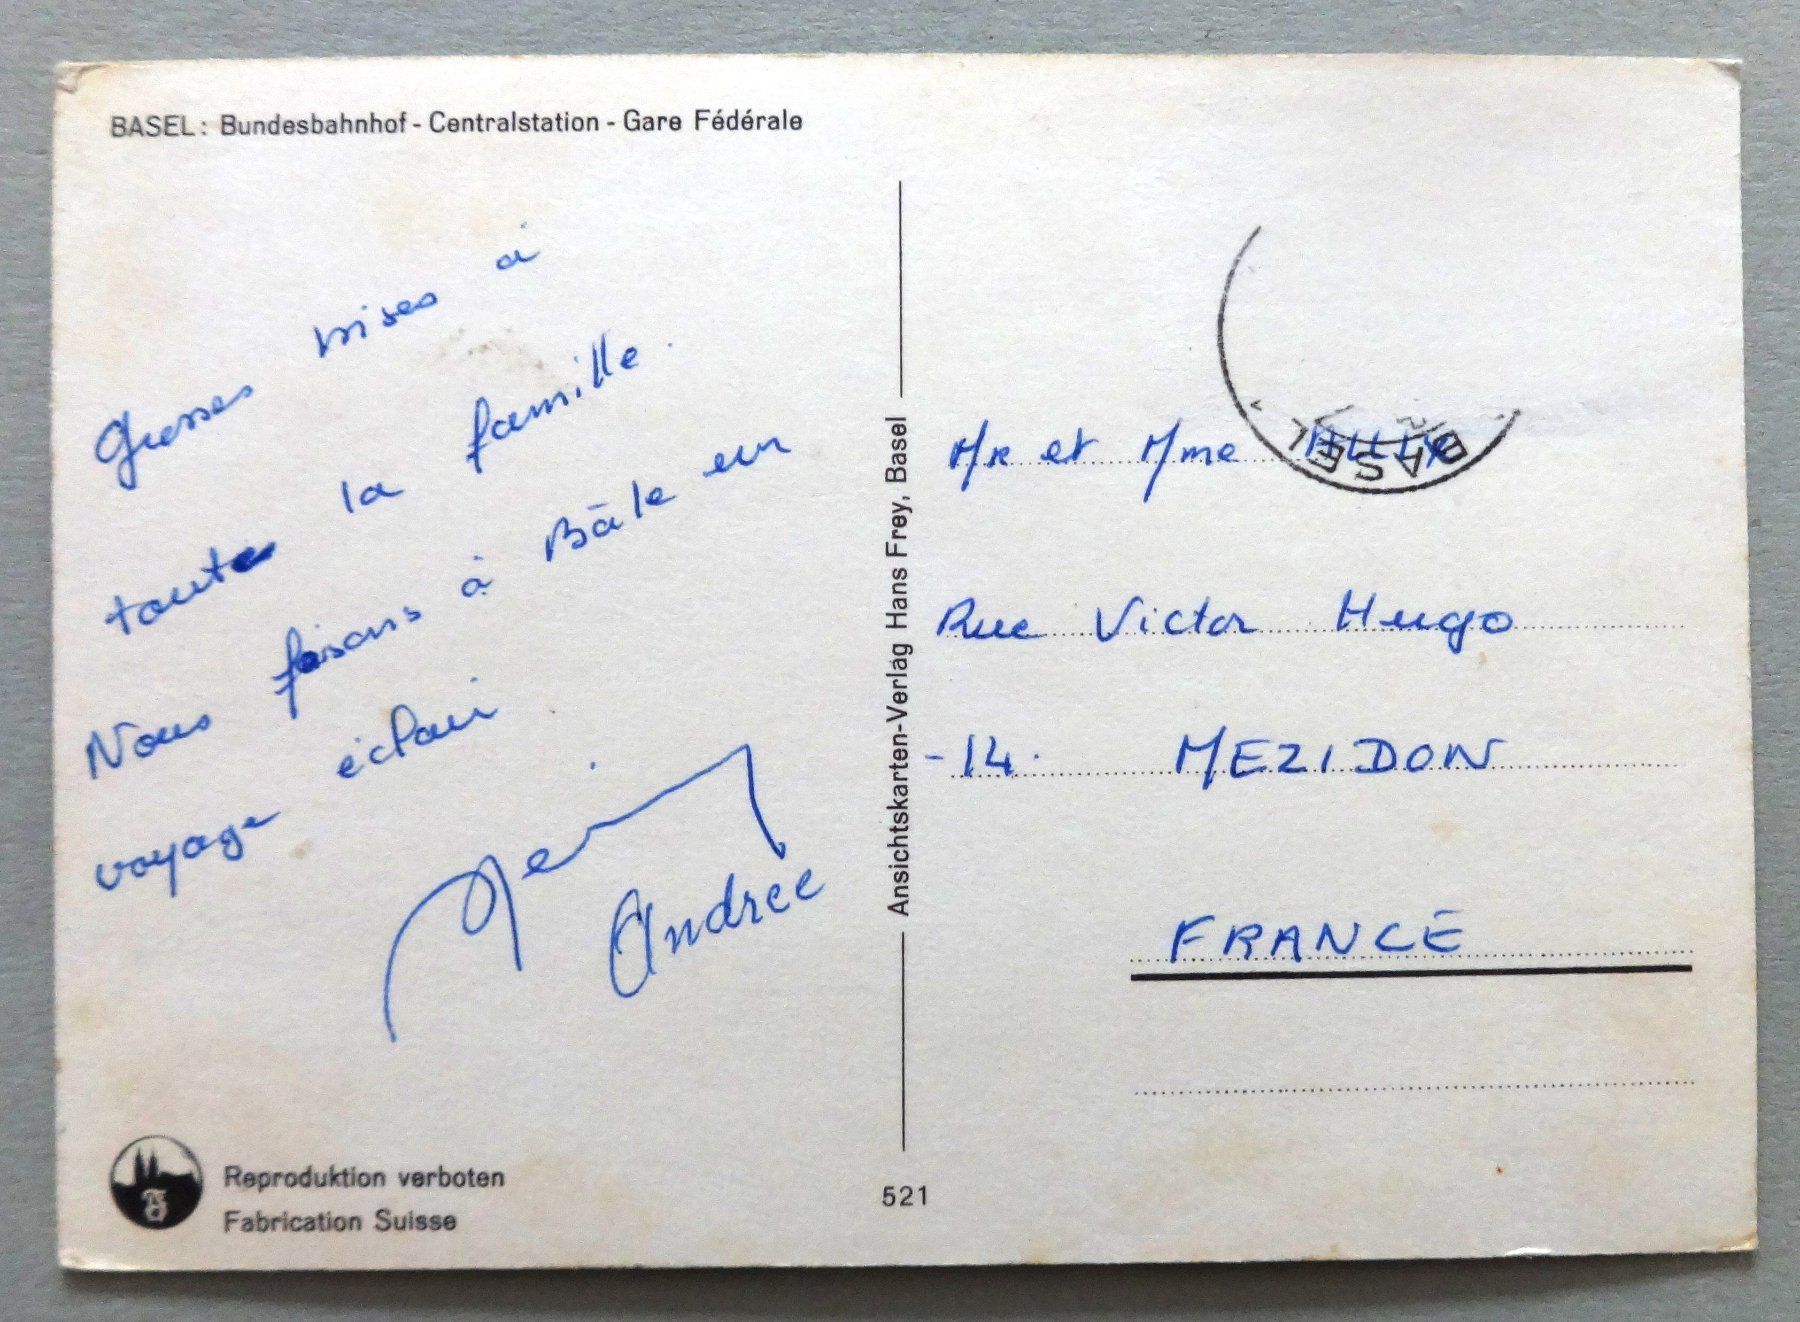 BASEL: Bundesbahnhof - Centralstation - Gare Fédérale
Grosses bises à
toute la famille.
Nous faisons à Bâle un
voyage éclair
Andrée
Ansichtskarten-Verlag Hans Frey, Basel
BASEL
Mr et Mme
Rue Victor Hugo
-14. MEZIDON
FRANCE
Reproduktion verboten
Fabrication Suisse
521